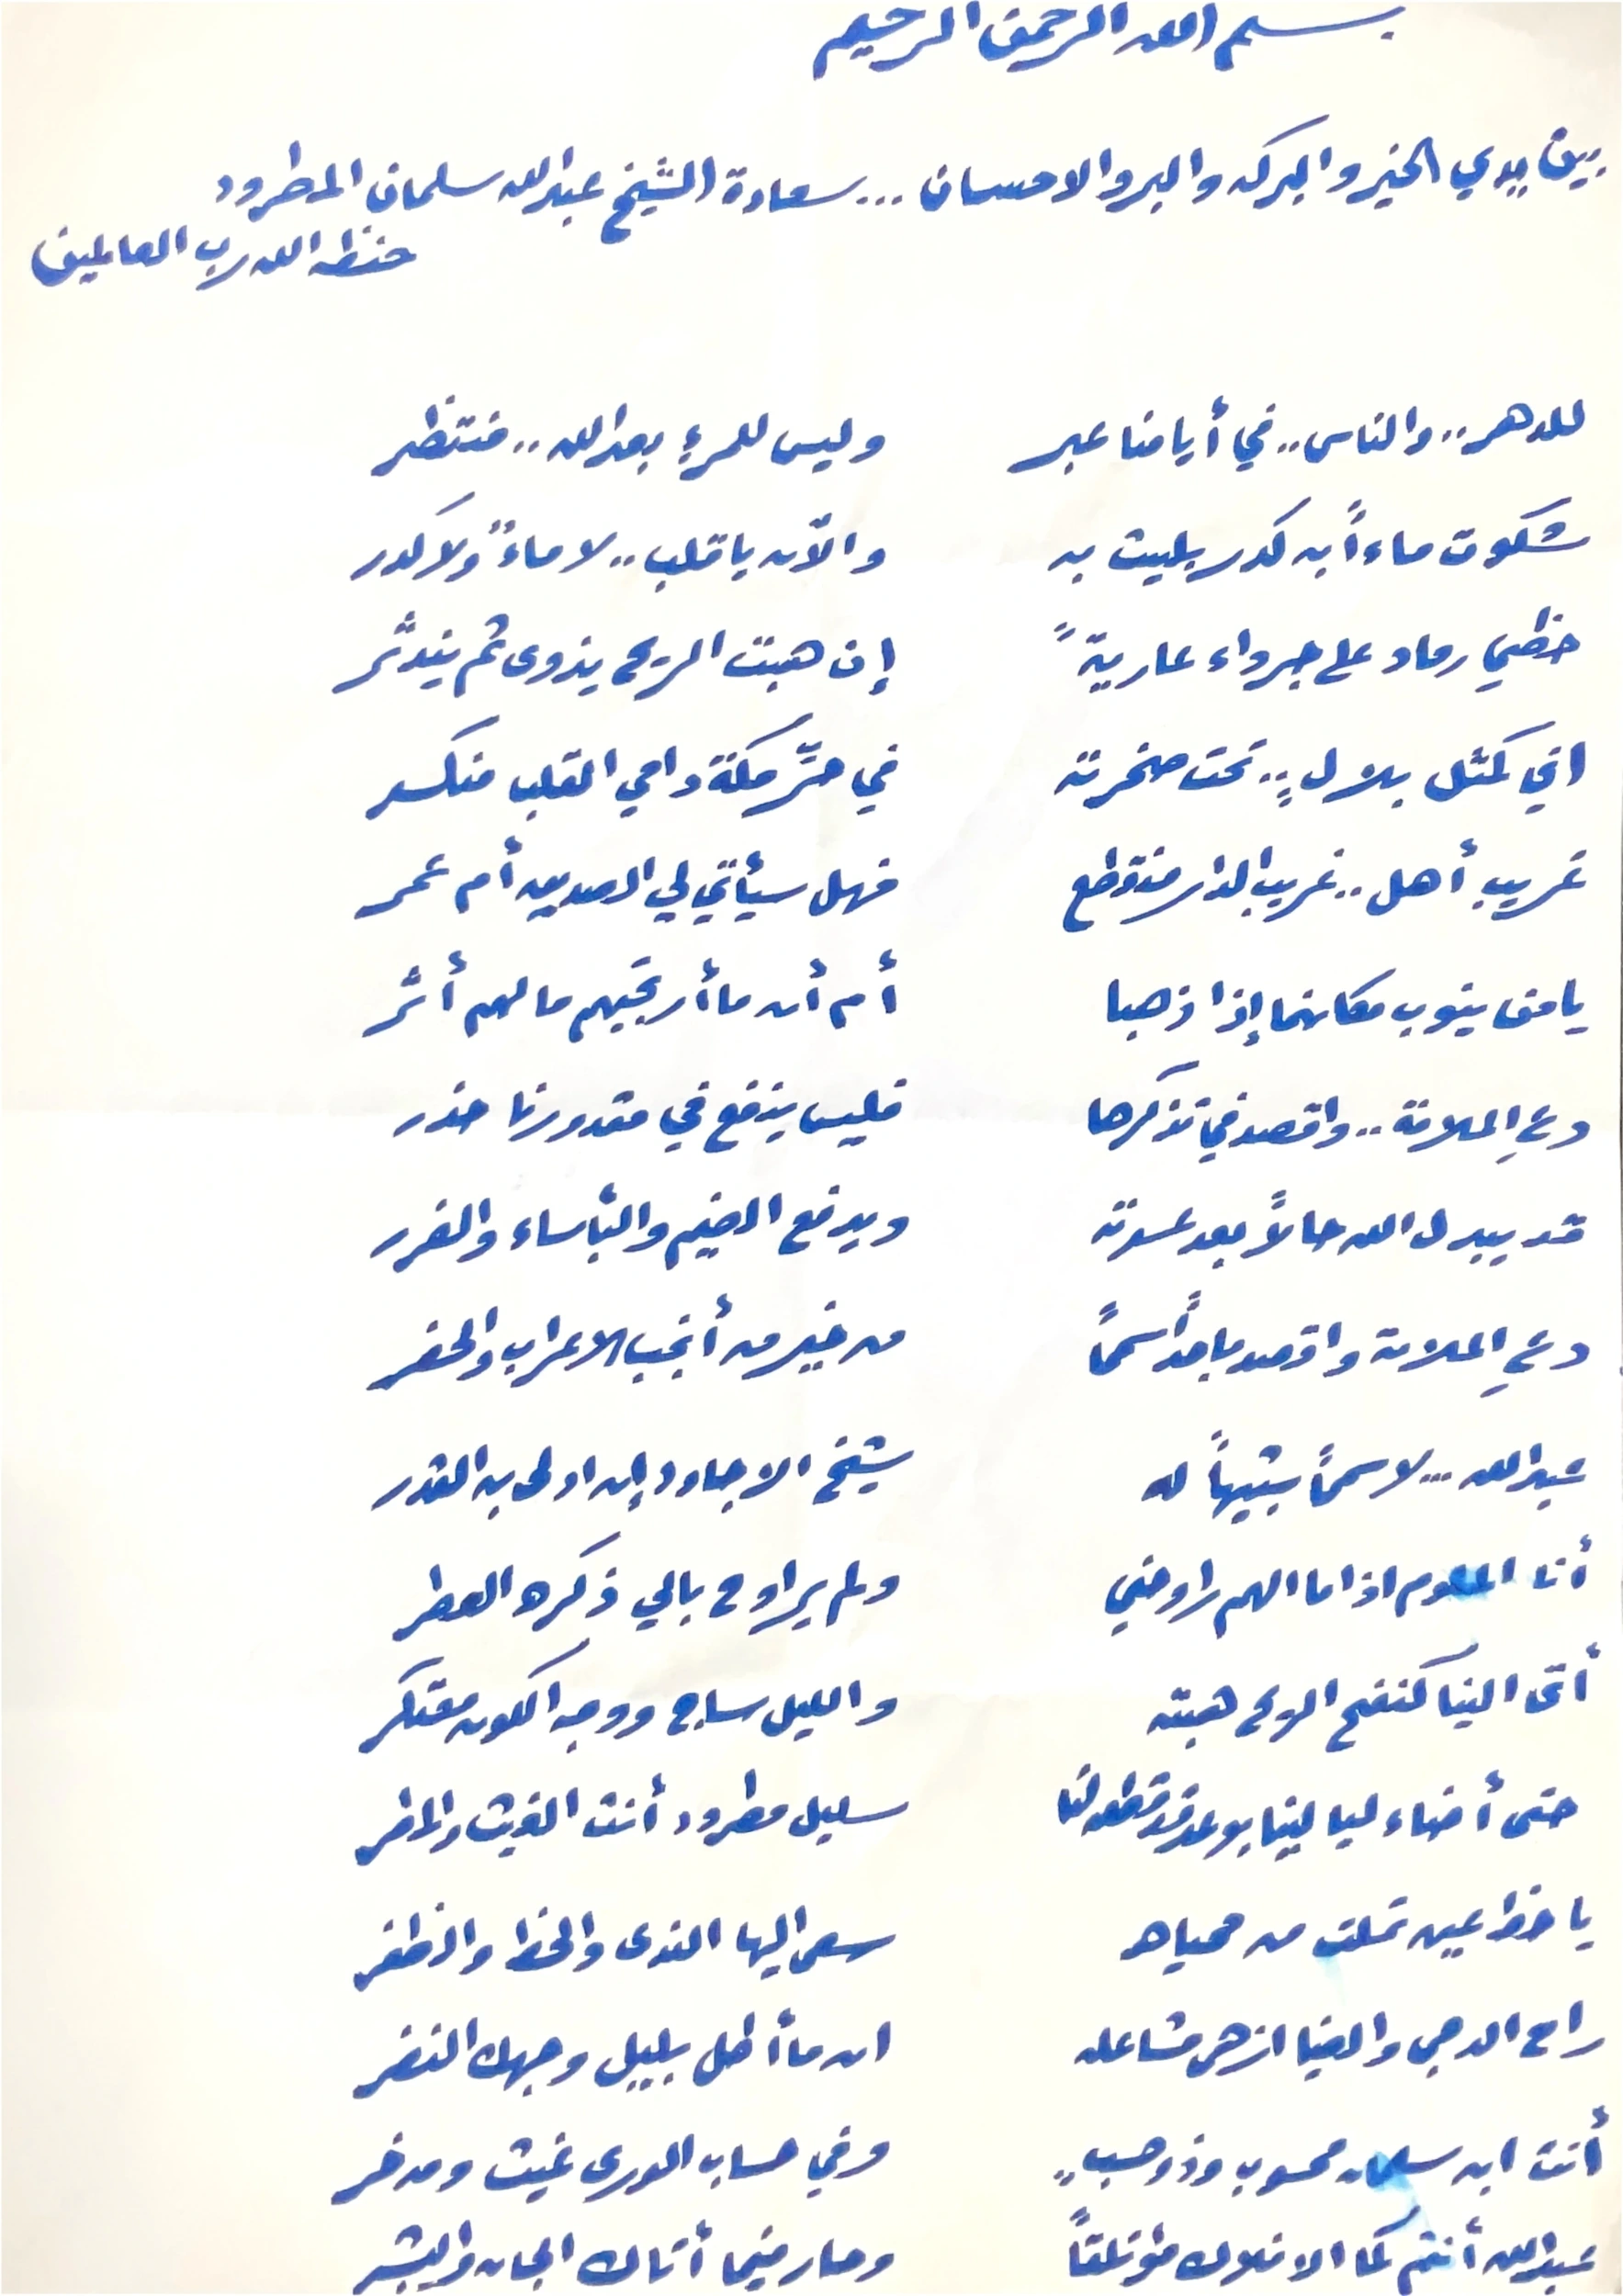 بسم الله الرحمن الرحيم
بين يدي الخير والبركه والبر والاحسان ... سعادة الشيخ عبدالله سلمان المطرود
حفظه الله رب العالمين
للدهر .. والناس .. في أيامنا عبر وليس للمرءِ بعد الله .. منتظر
شكوت ماءاً به كدر بليت به والآن يا قلب .. لا ماءٌ ولا كدر
حظي رماد على جرداء عاريةً إن هبت الريح يذوى ثم يندثر
اني كمثل بلالٍ .. تحت صخرته في حرِّ مكة دامي القلب منكسر
غريب أهل .. غريب الدار منقطع فهل سيأتي لي الصديق أم عمر
يا من ينوب مكانهما إذا ذهبا أم أن ما أرتجيهم ما لهم أثر
دعِ الملامة .. واقصد في تذكرها فليس ينفع في مقدورنا حذر
قد يبدل الله حالاً بعد عسرته ويدفع الضيم والبأساء والضرر
دعِ الملامة واقصد ماجداً سمحاً من خير من أنجب الاعراب والحضر
عبدالله ... لا سمحاً شبيهاً له شيخ الاجاود إن اولى به القدر
أنا الملوم اذا ما الهم راودني ولم يراوح بالي ذكره العطر
أتى الينا كنفح الروح هبته والليل ساج ووجه الكون معتكر
حتى أضاء ليالينا بوعد لنا سليل مطرود أنت الغيث والمطر
يا حظ عين تملت من محياه سعى اليها الندى والحظ والظفر
راح الدجى والضيا ازهر مشاعله ان ما أطل بليل وجهك النضر
أنت ابن سلمان محسوب وذو حسب .. وفي حساب الورى غيث ومدخر
عبدالله أنتم كما الافلاك مؤتلقاً وحار فيما أتاك الجان والبشر